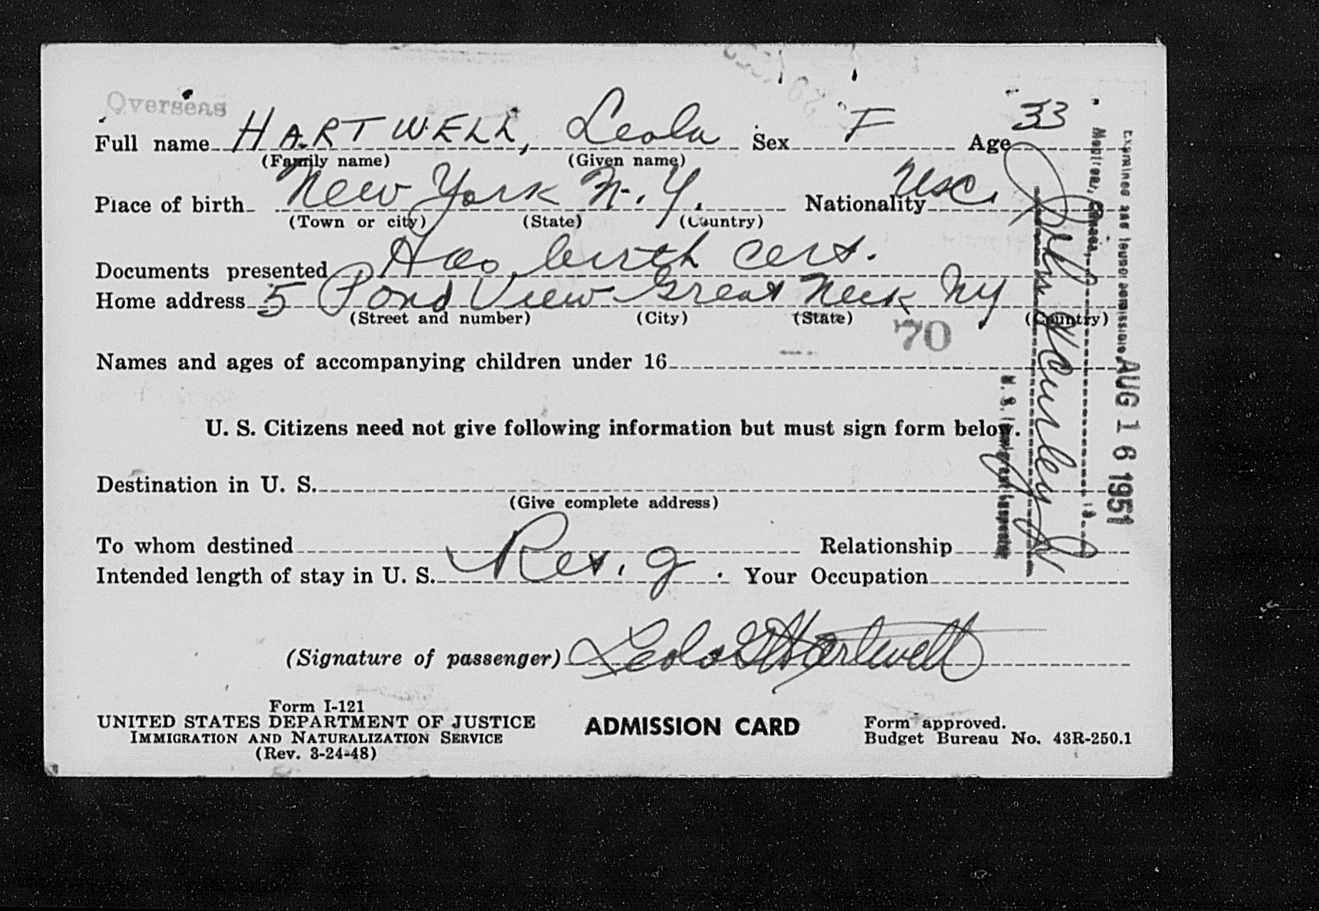 Overseas
Full name HARTWELL, Leola Sex F Age 33
(Family name) (Given name)
Place of birth New York N.Y. Nationality USC.
(Town or city) (State) (Country)
Documents presented Has birth cert.
Home address 5 Pond View Great Neck NY
(Street and number) (City) (State) (Country)
70
Names and ages of accompanying children under 16
U. S. Citizens need not give following information but must sign form below.
Destination in U. S.
(Give complete address)
To whom destined Relationship
Intended length of stay in U. S. Res. Your Occupation
(Signature of passenger) Leola G Hartwell
Form I-121
UNITED STATES DEPARTMENT OF JUSTICE
IMMIGRATION AND NATURALIZATION SERVICE
(Rev. 3-24-48)
ADMISSION CARD
Form approved.
Budget Bureau No. 43R-250.1
Examined and found admissible AUG 16 1951
Montreal, Canada,
U. S. Immigrant Inspector